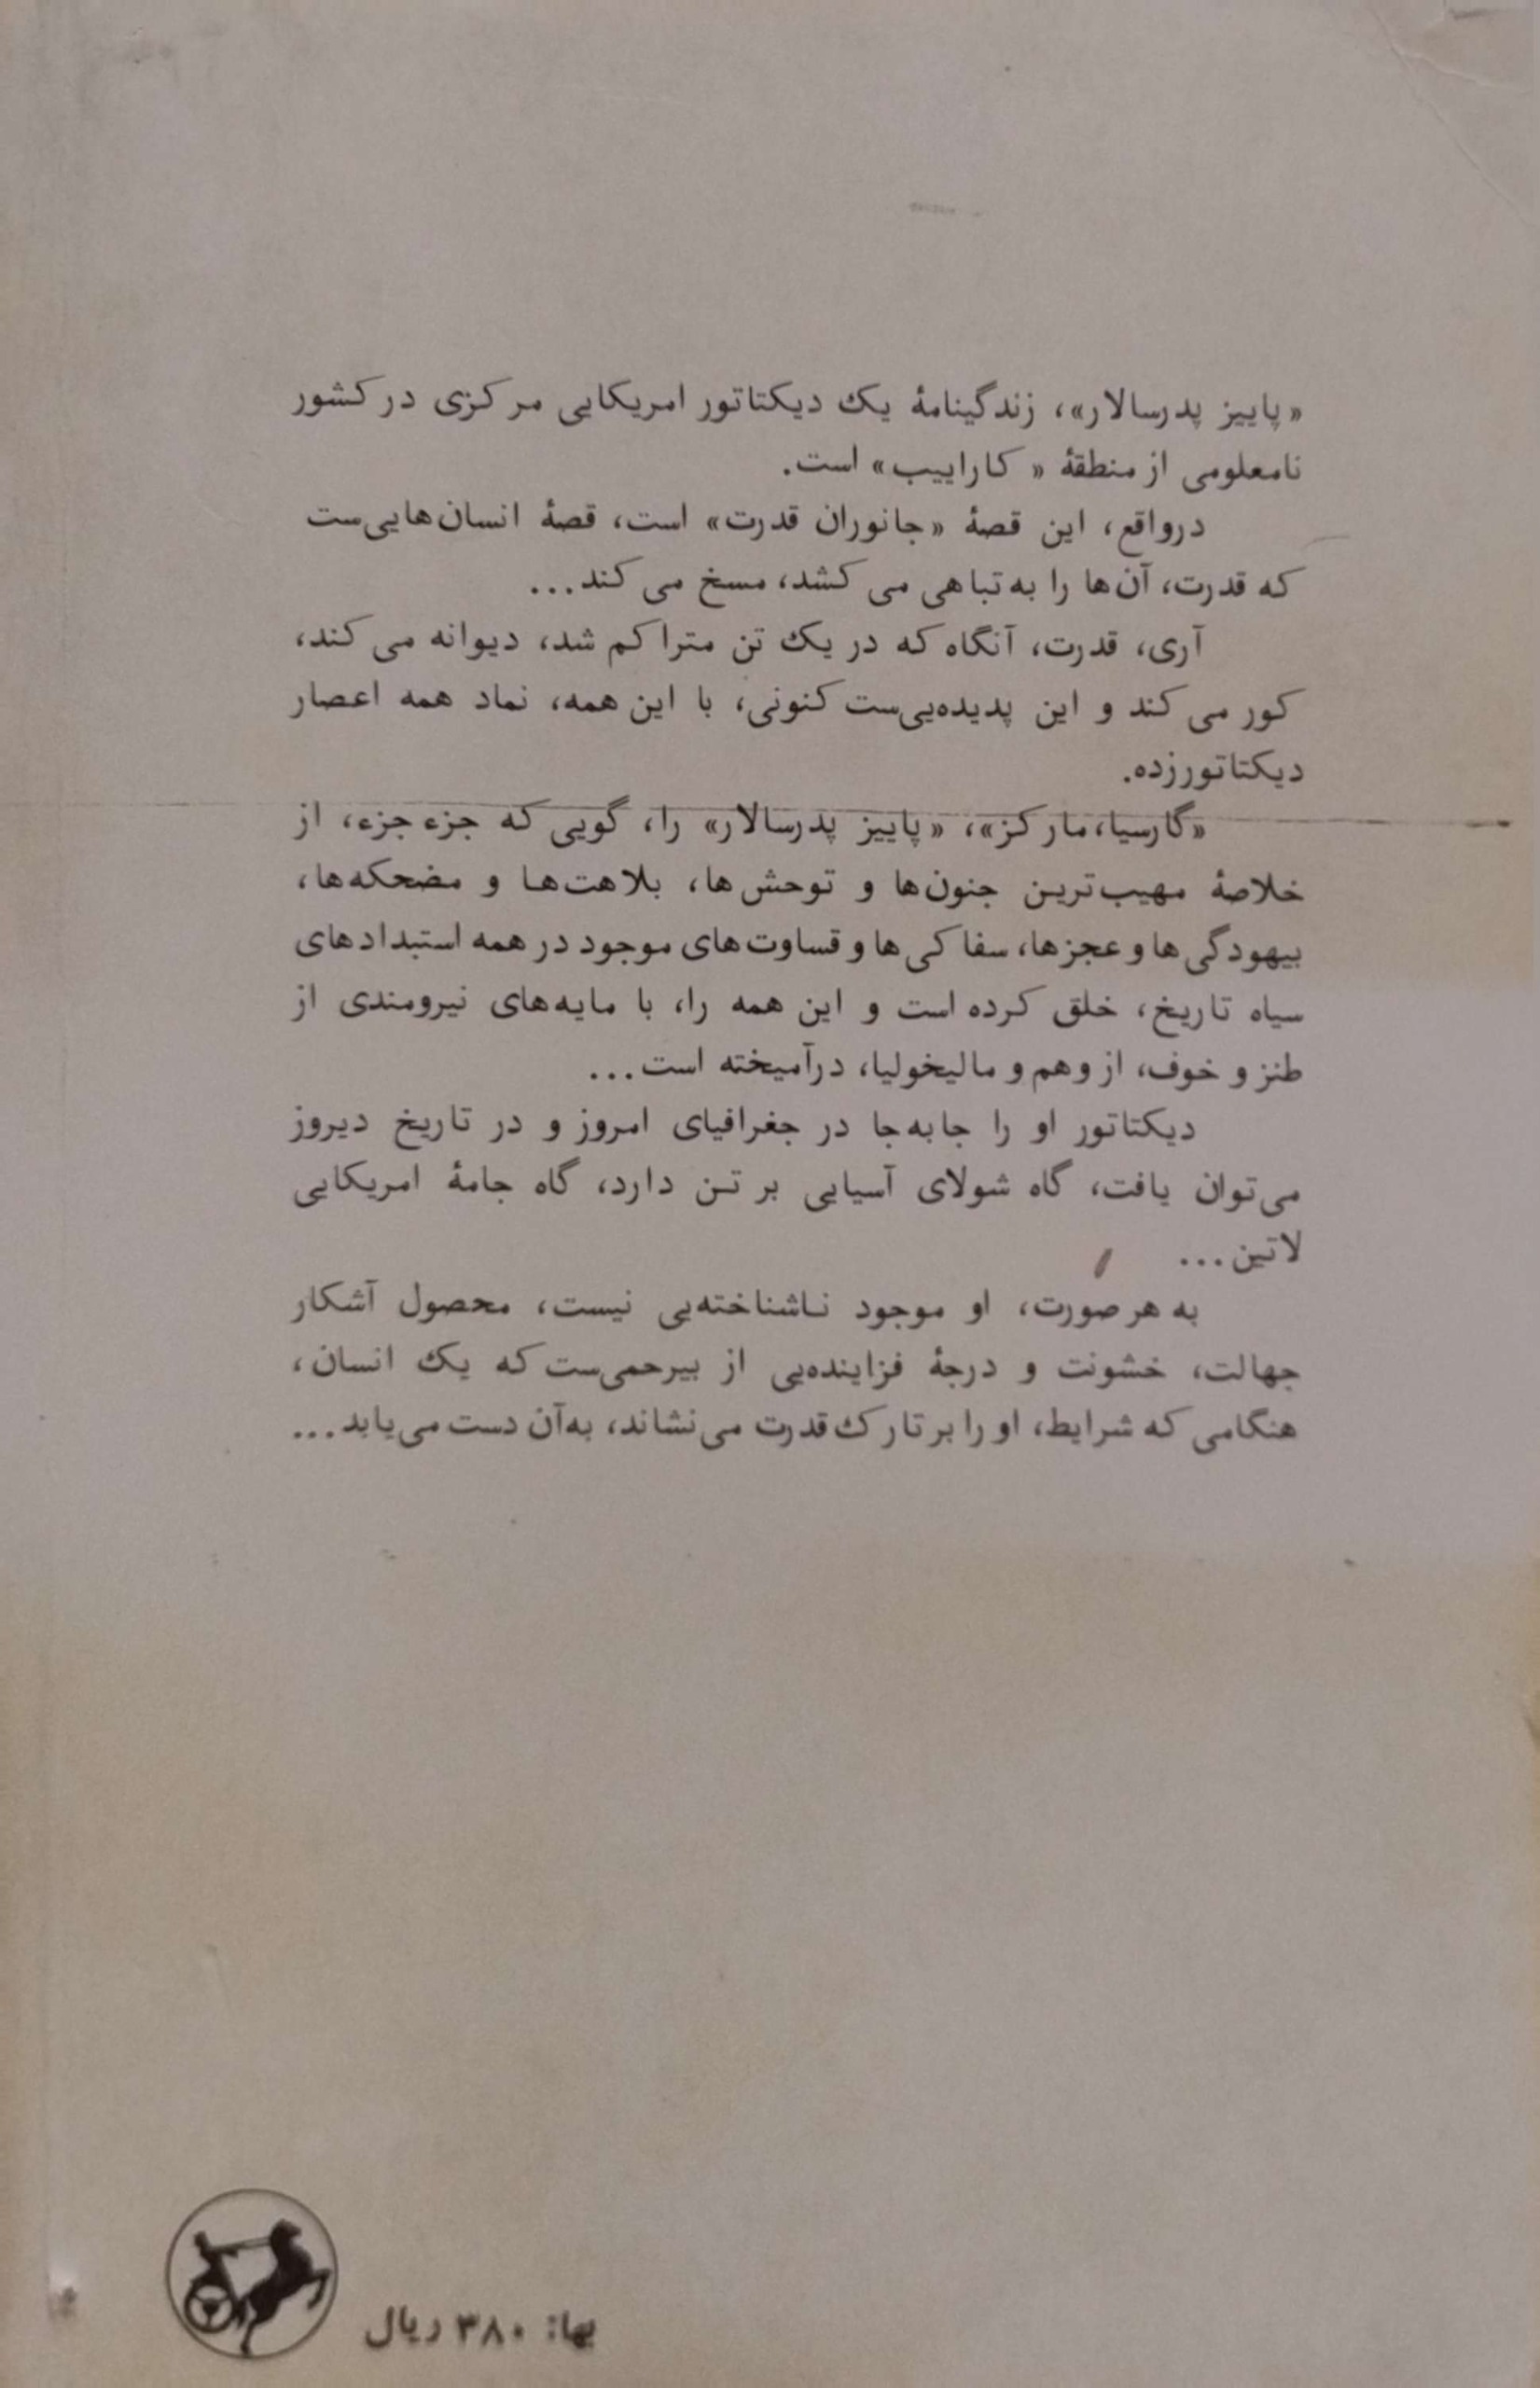 «پاییز پدرسالار»، زندگینامهٔ یک دیکتاتور امریکایی مرکزی در کشور
نامعلومی از منطقهٔ «کاراییب» است.
درواقع، این قصهٔ «جانوران قدرت» است، قصهٔ انسان‌هایی‌ست
که قدرت، آن‌ها را به تباهی می‌کشد، مسخ می‌کند...
آری، قدرت، آنگاه که در یک تن متراکم شد، دیوانه می‌کند،
کور می‌کند و این پدیده‌یی‌ست کنونی، با این همه، نماد همه اعصار
دیکتاتورزده.
«گارسیا، مارکز»، «پاییز پدرسالار» را، گویی که جزء جزء، از
خلاصهٔ مهیب‌ترین جنون‌ها و توحش‌ها، بلاهت‌ها و مضحکه‌ها،
بیهودگی‌ها و عجزها، سفاکی‌ها و قساوت‌های موجود در همه استبدادهای
سیاه تاریخ، خلق کرده است و این همه را، با مایه‌های نیرومندی از
طنز و خوف، از وهم و مالیخولیا، درآمیخته است...
دیکتاتور او را جابه‌جا در جغرافیای امروز و در تاریخ دیروز
می‌توان یافت، گاه شولای آسیایی بر تن دارد، گاه جامهٔ امریکایی
لاتین...
به هر صورت، او موجود ناشناخته‌یی نیست، محصول آشکار
جهالت، خشونت و درجهٔ فزاینده‌یی از بیرحمی‌ست که یک انسان،
هنگامی که شرایط، او را بر تارک قدرت می‌نشاند، به‌آن دست می‌یابد...
بها: ۳۸۰ ریال